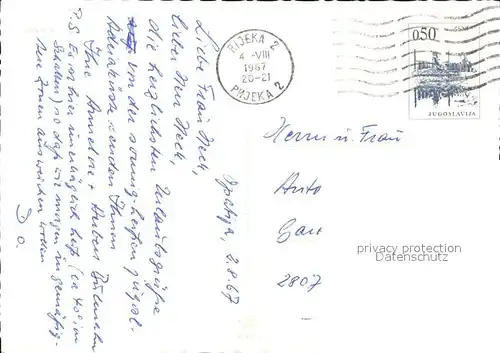 Opatija, 2.8.67
Liebe Frau Heck,
lieber Herr Heck,
die herzlichsten Urlaubsgrüße
von der sonnig-heißen jugosl.
Adriaküste senden Ihnen
Ihre Annelore + Hubert
P.S. Es ist hier unerträglich heiß (ca 40° im
Schatten) so daß wir morgen in gemäßig-
tere Zonen ausweichen werden
D. O.
RIJEKA 2
4 -VIII
1967
20-21
РИЈЕКА 2
0,50
JUGOSLAVIJA
Herrn u. Frau
privacy protection
Datenschutz
2807